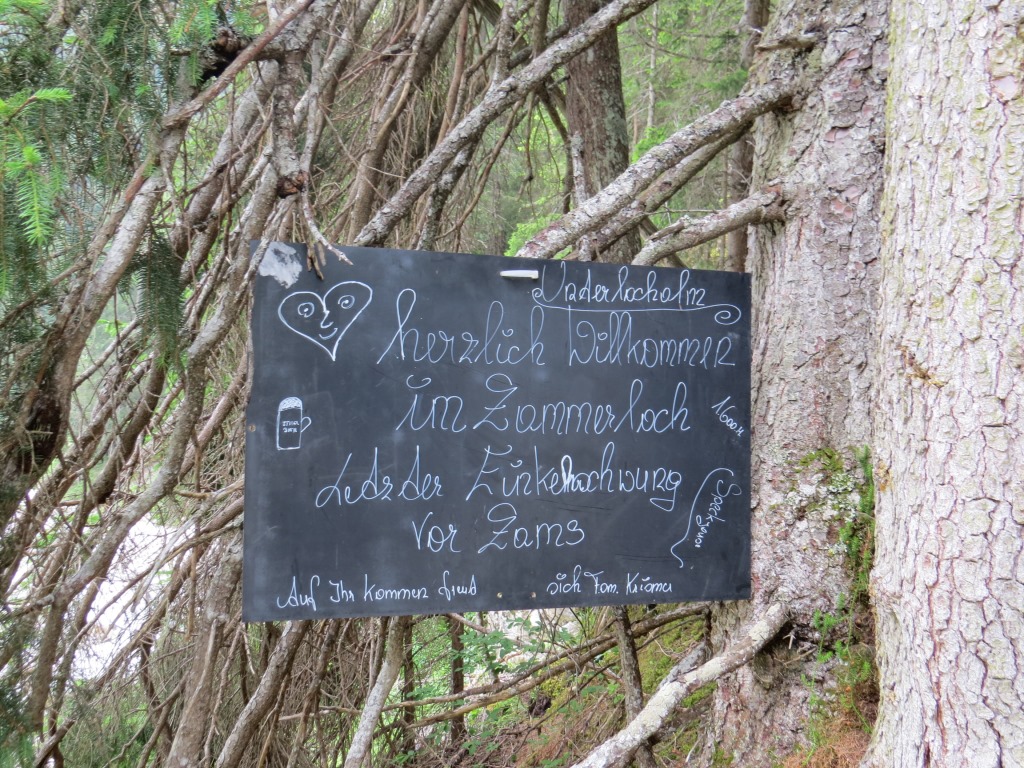 Unterlochalm
herzlich Willkommen
im Zammerloch
1600m
Letzter Einkehrschwung
Vor Zams
Auf Ihr Kommen freut sich Fam.